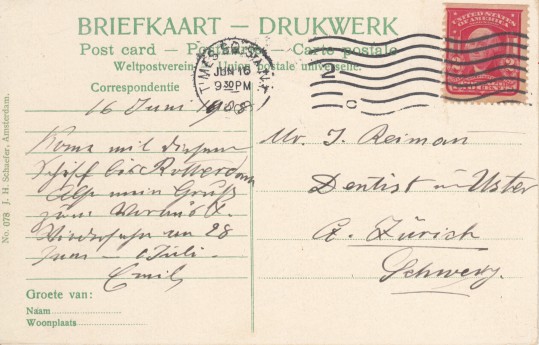 BRIEFKAART — DRUKWERK
Post card — Postkarte — Carte postale
Weltpostverein — Union postale universelle.
Correspondentie
TIMES SQ. STA. N.Y.
JUN 16
930 PM
1908
2
C
UNITED STATES
OF AMERICA
16 Juni 1908
Komme mit diesem
Schiff bis Rotterdam
Also mein Gruß
zum Voraus
Wiedersehn
Juni — Juli
Emil
Mr. J. Reiman
Dentist in Uster
Ct. Zürich
Schweiz.
Groete van:
Naam
Woonplaats
No. 078 J. H. Schaefer, Amsterdam.